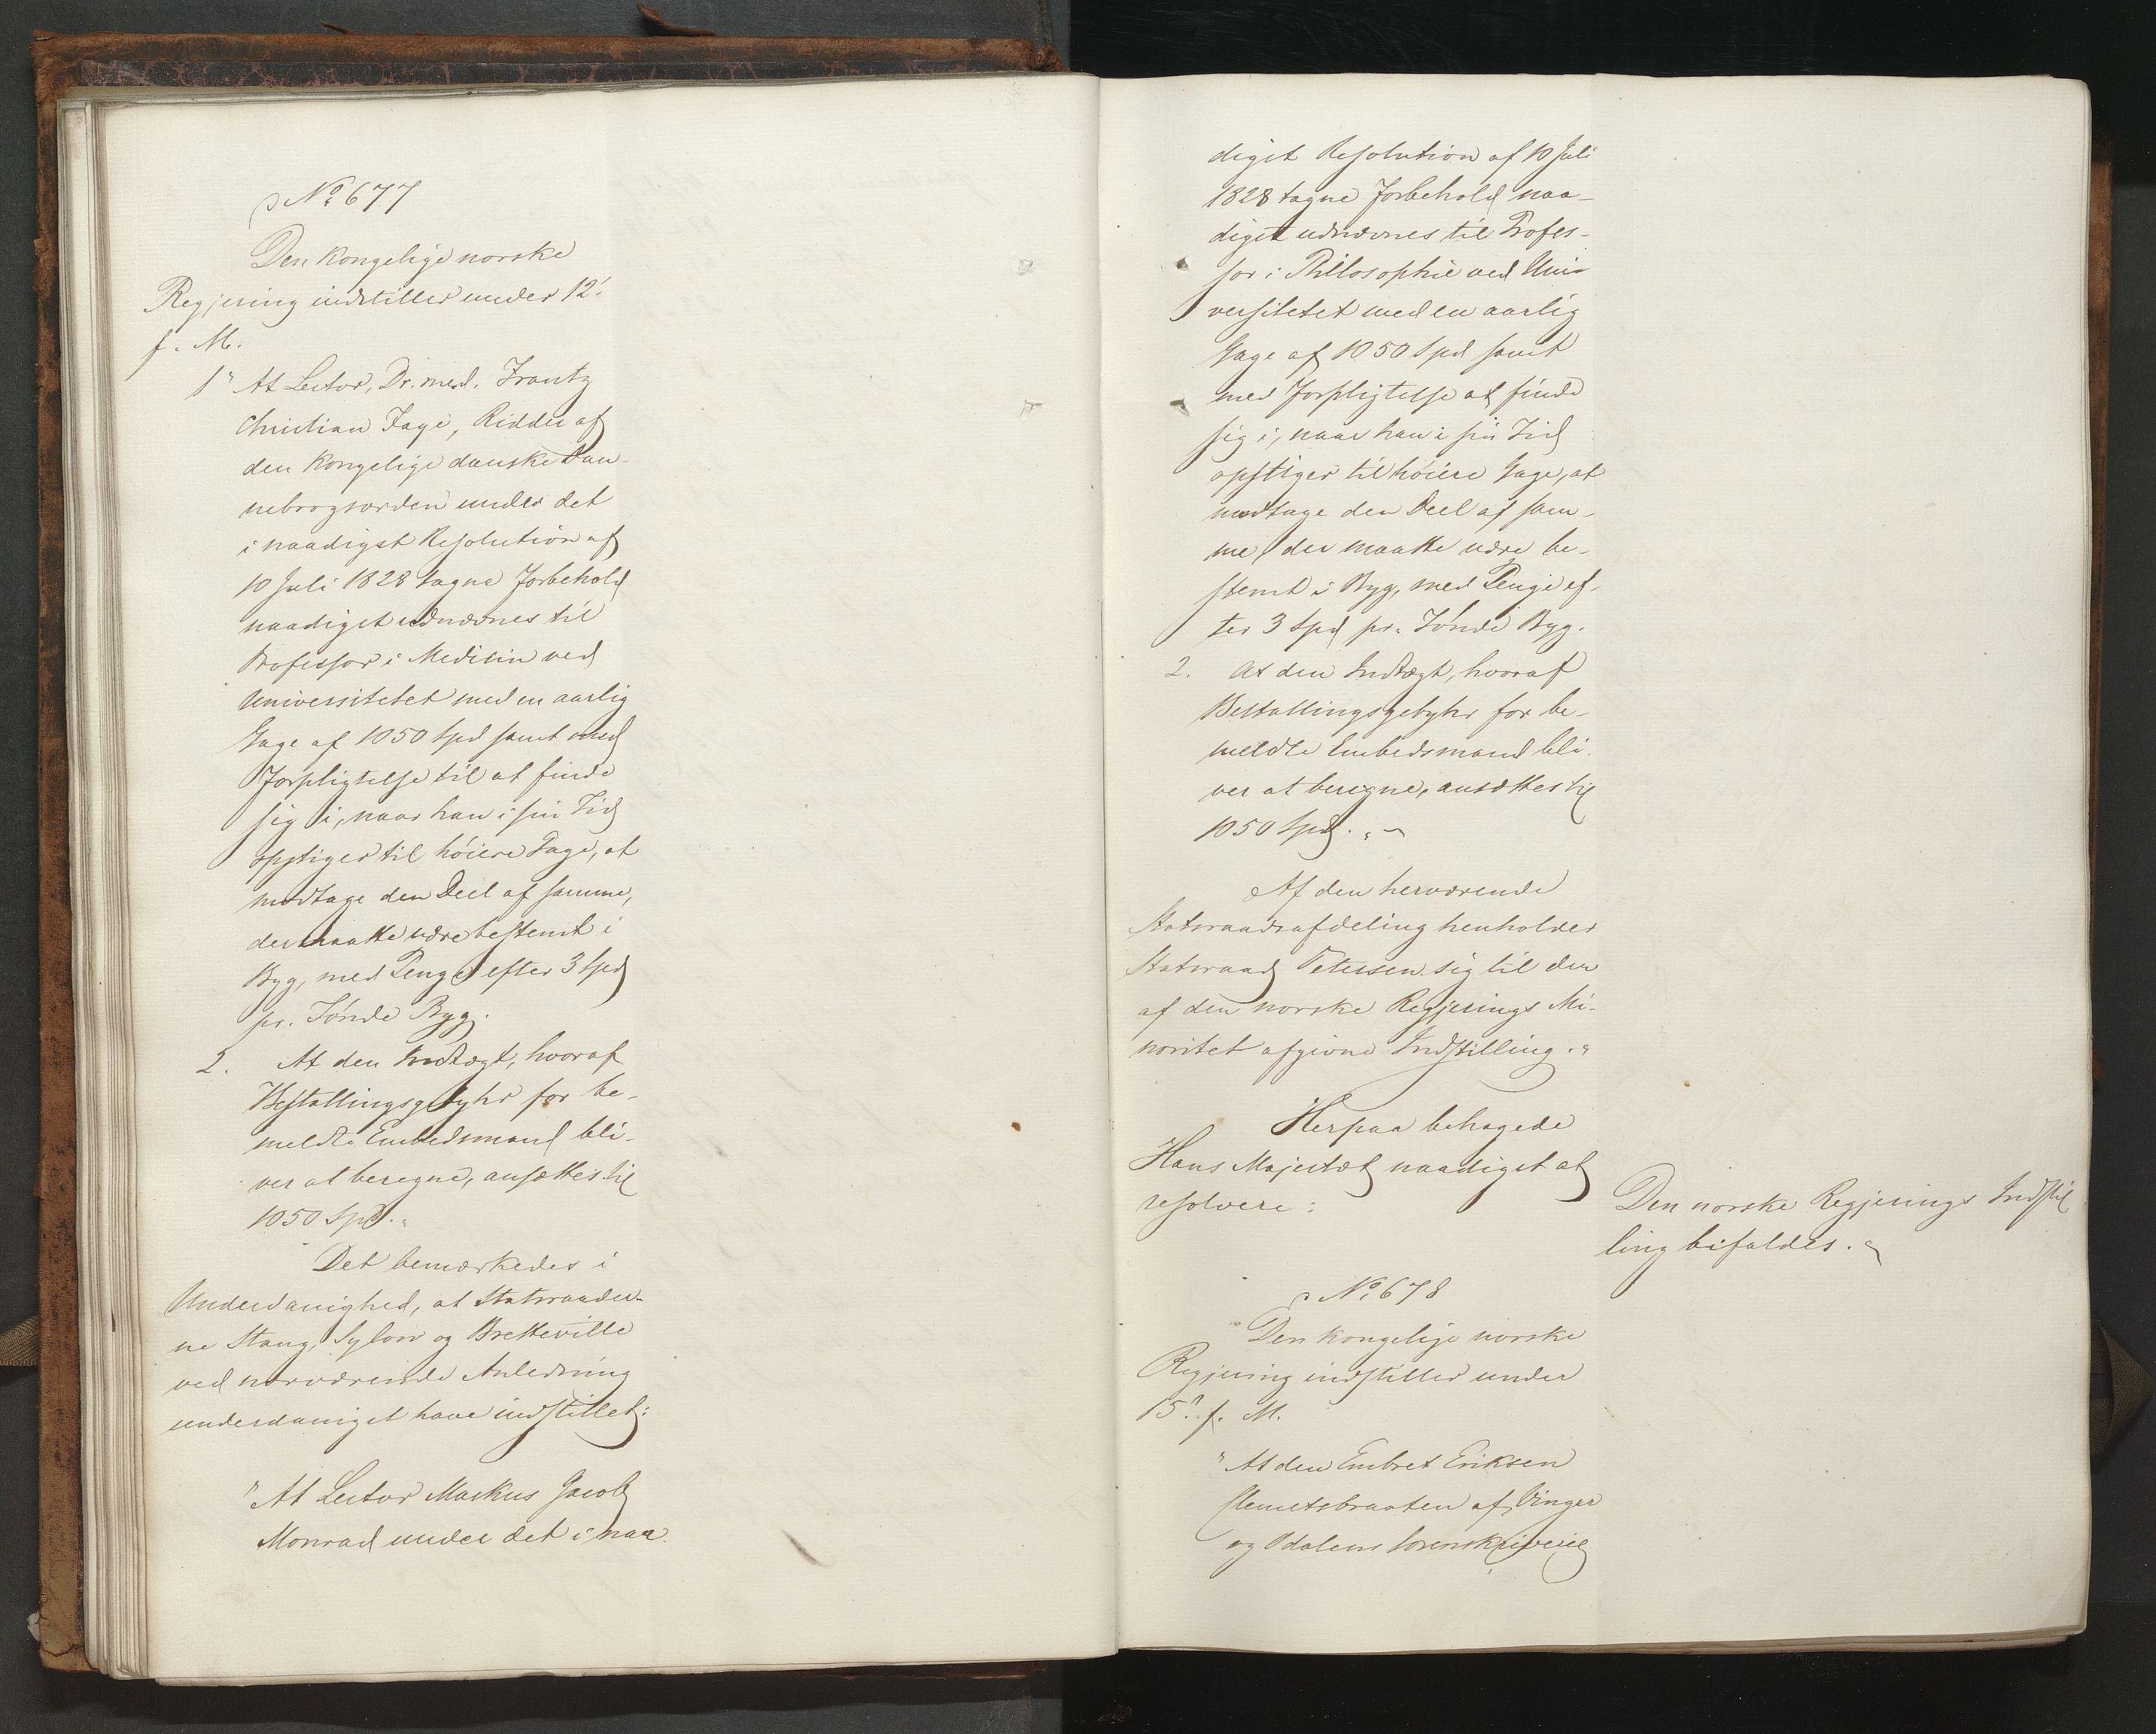 No 677
Den kongelige norske
Regjering indstiller under 12.
f. M.
1" At Lector, Dr. med. Frantz
Christian Faye, Ridder af
den kongelige danske Dan-
nebrogsorden under det
i naadigst Resolution af
10 Juli 1828 tagne Forbehold
naadigst udnævnes til
Professor i Medicin ved
Universitetet med en aarlig
Gage af 1050 Spd samt med
Forpligtelse til at finde
sig i, naar han i sin Tid
opstiger til høiere Gage, at
modtage den Deel af samme,
der maatte være bestemt i
Byg, med Penge efter 3 Spd
pr. Tønde Byg.
2. At den Indtægt, hvoraf
Bestallingsgebyhr for be-
meldte Embedsmand bli-
ver at beregne, ansættes til
1050 Spd."
Det bemærkedes i
Underdanighed, at Statsraader-
ne Stang, Sylow og Bretteville
ved nærværende Anledning
underdanigst have indstillet:
"At Lector Markus Jacob
Monrad under det i naa-
digst Resolution af 10 Juli
1828 tagne Forbehold naa-
digst udnævnes til Profes-
sor i Philosophie ved Uni-
versitetet med en aarlig
Gage af 1050 Spd samt
med Forpligtelse at finde
sig i, naar han i sin Tid
opstiger til høiere Gage, at
modtage den Deel af sam-
me, der maatte være be-
stemt i Byg, med Penge ef-
ter 3 Spd pr. Tønde Byg.
2. At den Indtægt, hvoraf
Bestallingsgebyhr for be-
meldte Embedsmand bli-
ver at beregne, ansættes til
1050 Spd."
Af den herværende
Statsraadsafdeling henholder
Statsraad Petersen sig til den
af den norske Regjerings Mi-
noritet afgivne Indstilling."
Herpaa behagede
Hans Majestæt naadigst at
resolvere:
Den norske Regjerings Indstil
ling bifaldes."
No 678
Den kongelige norske
Regjering indstiller under
15. f. M.
"At den Embret Eriksen
Slemetsbraaten af Vinger
og Odalens Sorenskriverie